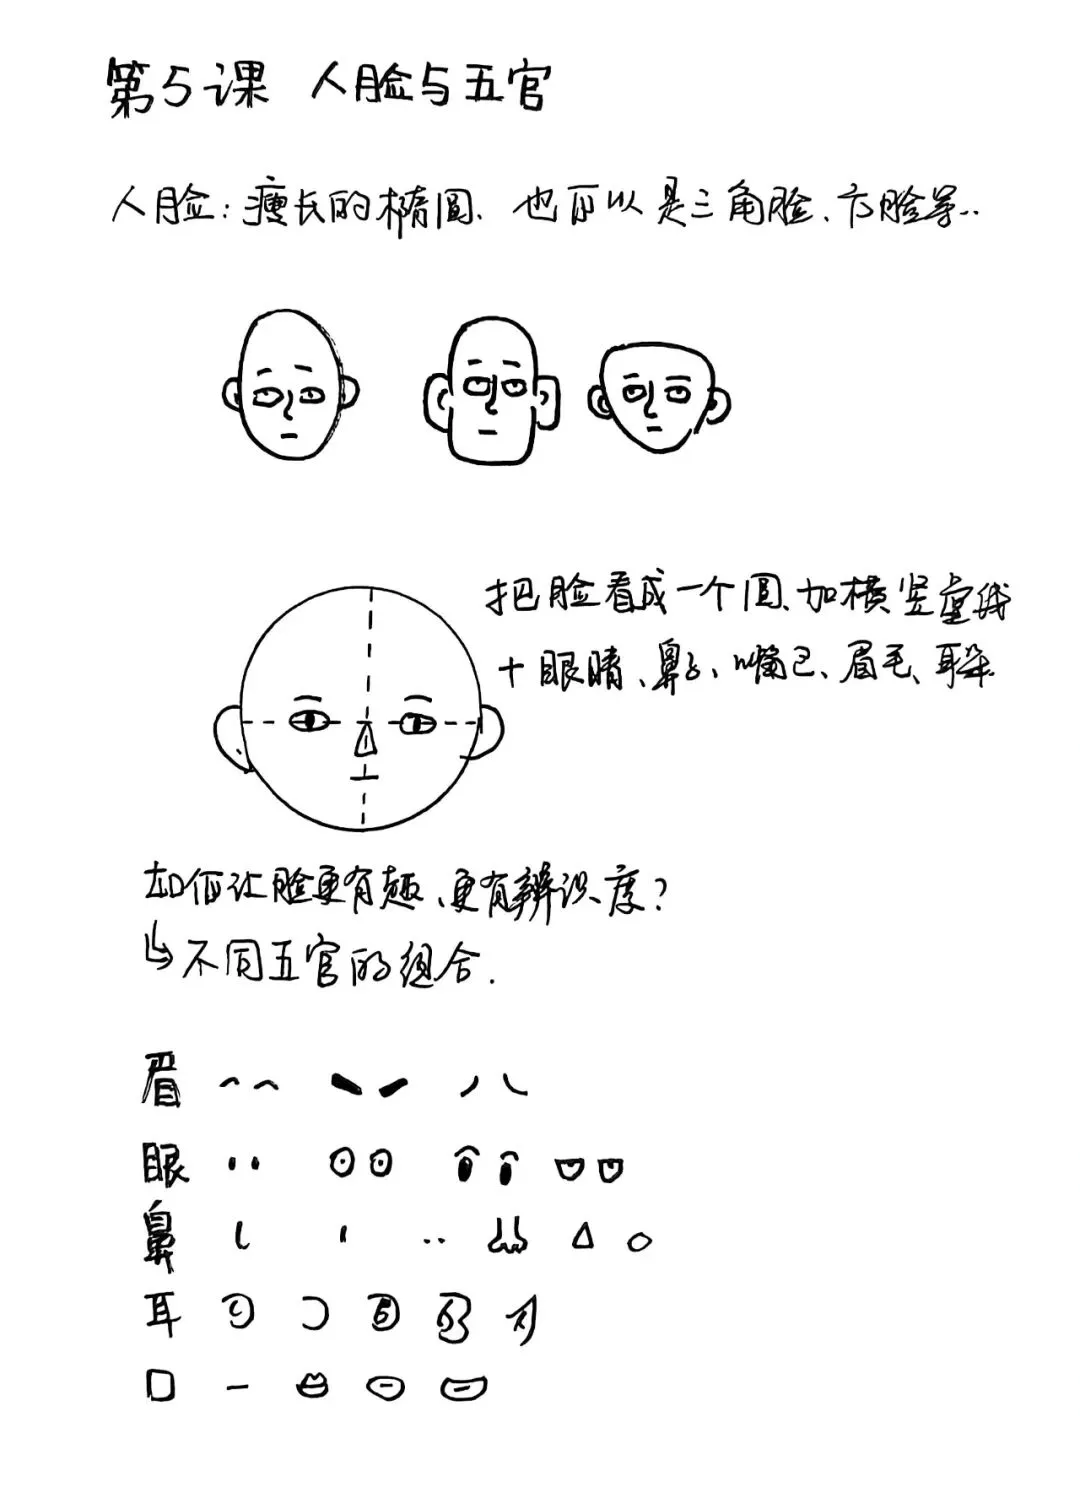 第5课 人脸与五官
人脸：瘦长的椭圆、也可以是三角脸、方脸等..
把脸看成一个圆、加横竖虚线
+眼睛、鼻子、嘴巴、眉毛、耳朵.
如何让脸更有趣、更有辨识度？
↳不同五官的组合.
眉
眼
鼻
耳
口